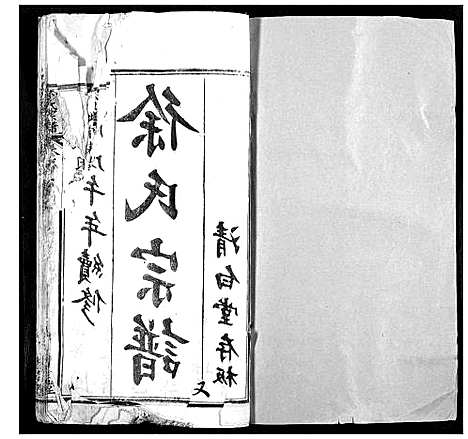 清白堂存板
徐氏宗譜
午年續修